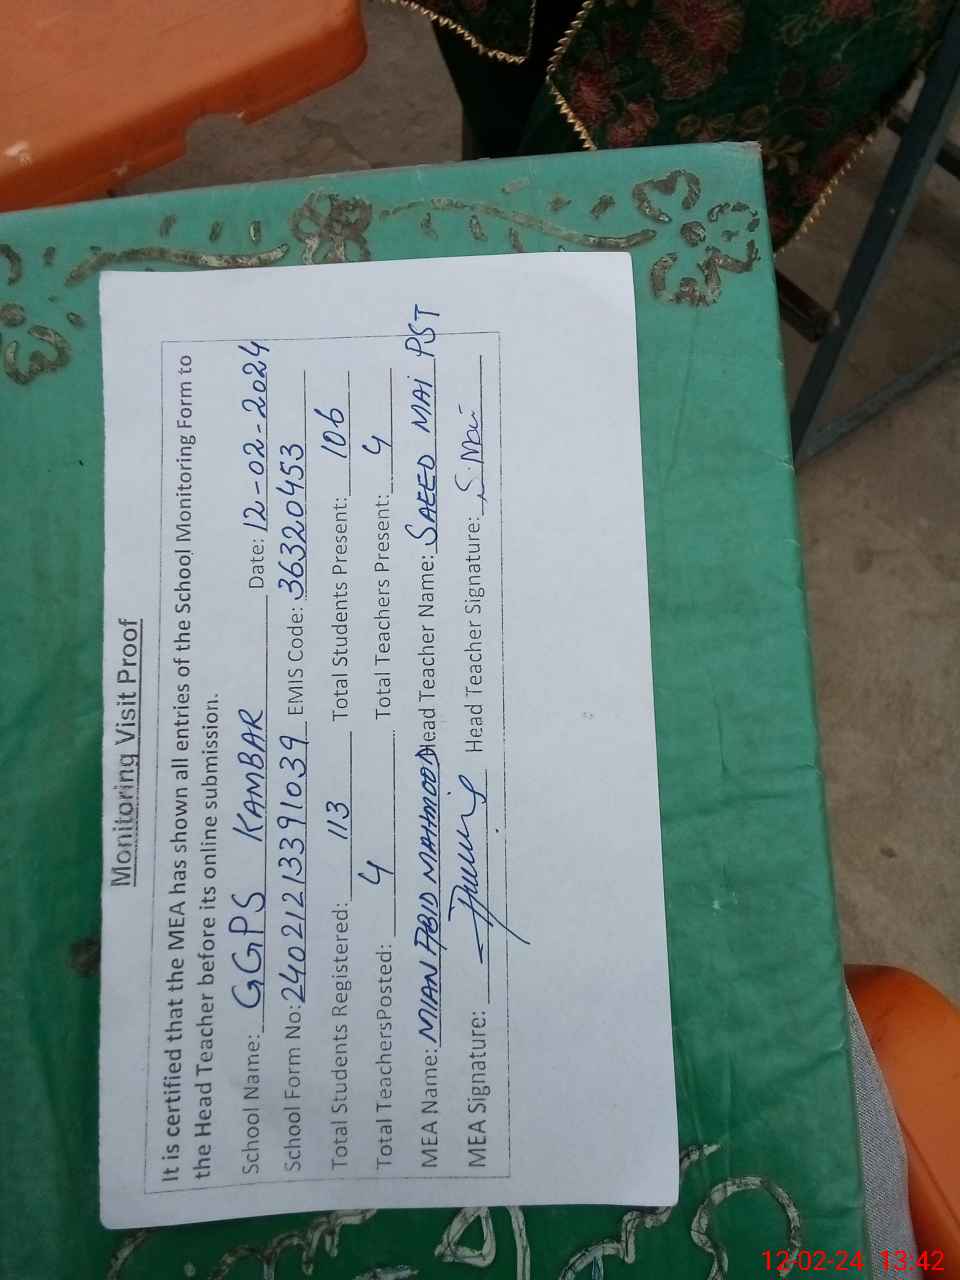 Monitoring Visit Proof
It is certified that the MEA has shown all entries of the School Monitoring Form to
the Head Teacher before its online submission.
School Name: GGPS KAMBAR Date: 12-02-2024
School Form No: 24021213391039 EMIS Code: 36320453
Total Students Registered: 113 Total Students Present: 106
Total TeachersPosted: 4 Total Teachers Present: 4
MEA Name: MIAN ABID MAHMOOD Head Teacher Name: SAEED MAI PST
MEA Signature: Head Teacher Signature: S.Mai
12-02-24 13:42